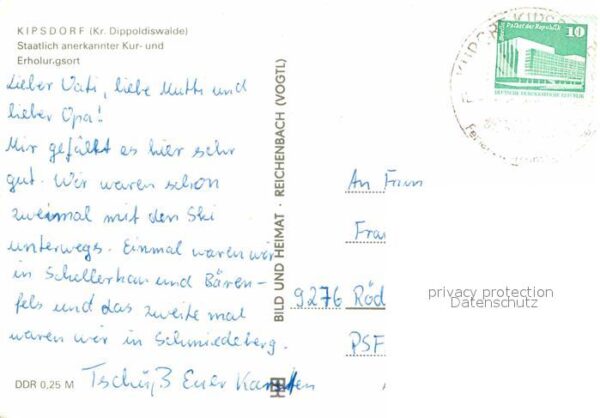 KIPSDORF (Kr. Dippoldiswalde)
Staatlich anerkannter Kur- und
Erholungsort
Lieber Vati, liebe Mutti und
lieber Opa!
Mir gefällt es hier sehr
gut. Wir waren schon
zweimal mit den Ski
unterwegs. Einmal waren wir
in Schellerhau und Bären-
fels und das zweite mal
waren wir in Schmiedeberg.
Tschüß Euer Karsten
DDR 0,25 M
BILD UND HEIMAT · REICHENBACH (VOGTL)
Berlin Palast der Republik
10
DEUTSCHE DEMOKRATISCHE REPUBLIK
KURORT KIPSDORF
An Fam
Fra
9276 Röd
PSF
privacy protection
Datenschutz